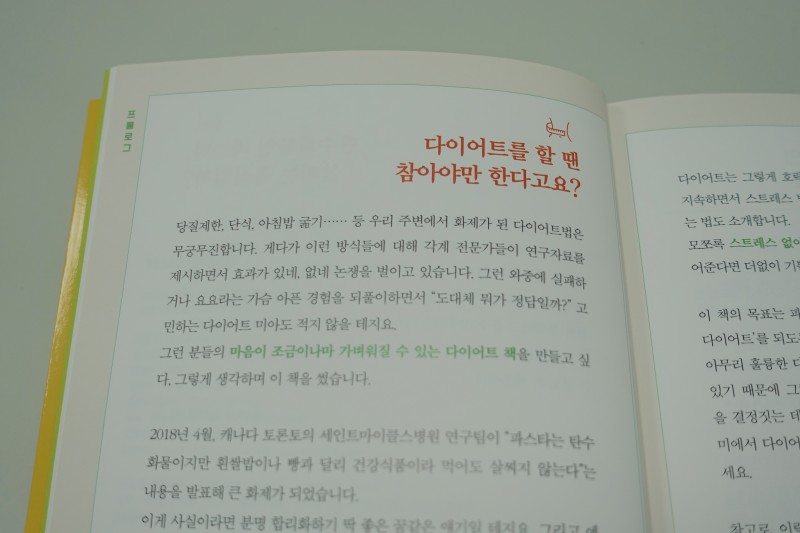 프롤로그
다이어트를 할 땐
참아야만 한다고요?
당질제한, 단식, 아침밥 굶기…… 등 우리 주변에서 화제가 된 다이어트법은
무궁무진합니다. 게다가 이런 방식들에 대해 각계 전문가들이 연구자료를
제시하면서 효과가 있네, 없네 논쟁을 벌이고 있습니다. 그런 와중에 실패하
거나 요요라는 가슴 아픈 경험을 되풀이하면서 “도대체 뭐가 정답일까?” 고
민하는 다이어트 미아도 적지 않을 테지요.
그런 분들의 마음이 조금이나마 가벼워질 수 있는 다이어트 책을 만들고 싶
다, 그렇게 생각하며 이 책을 썼습니다.
2018년 4월, 캐나다 토론토의 세인트마이클스병원 연구팀이 “파스타는 탄수
화물이지만 흰쌀밥이나 빵과 달리 건강식품이라 먹어도 살찌지 않는다”는
내용을 발표해 큰 화제가 되었습니다.
이게 사실이라면 분명 합리화하기 딱 좋은 꿈같은 얘기일 테지요. 그리고
다이어트는 그렇게
지속하면서 스트레스
는 법도 소개합니다.
모쪼록 스트레스 없이
어준다면 더없이
이 책의 목표는
다이어트’를
아무리 훌륭한
있기 때문에
을 결정짓는 데
미에서
세요.
참고로